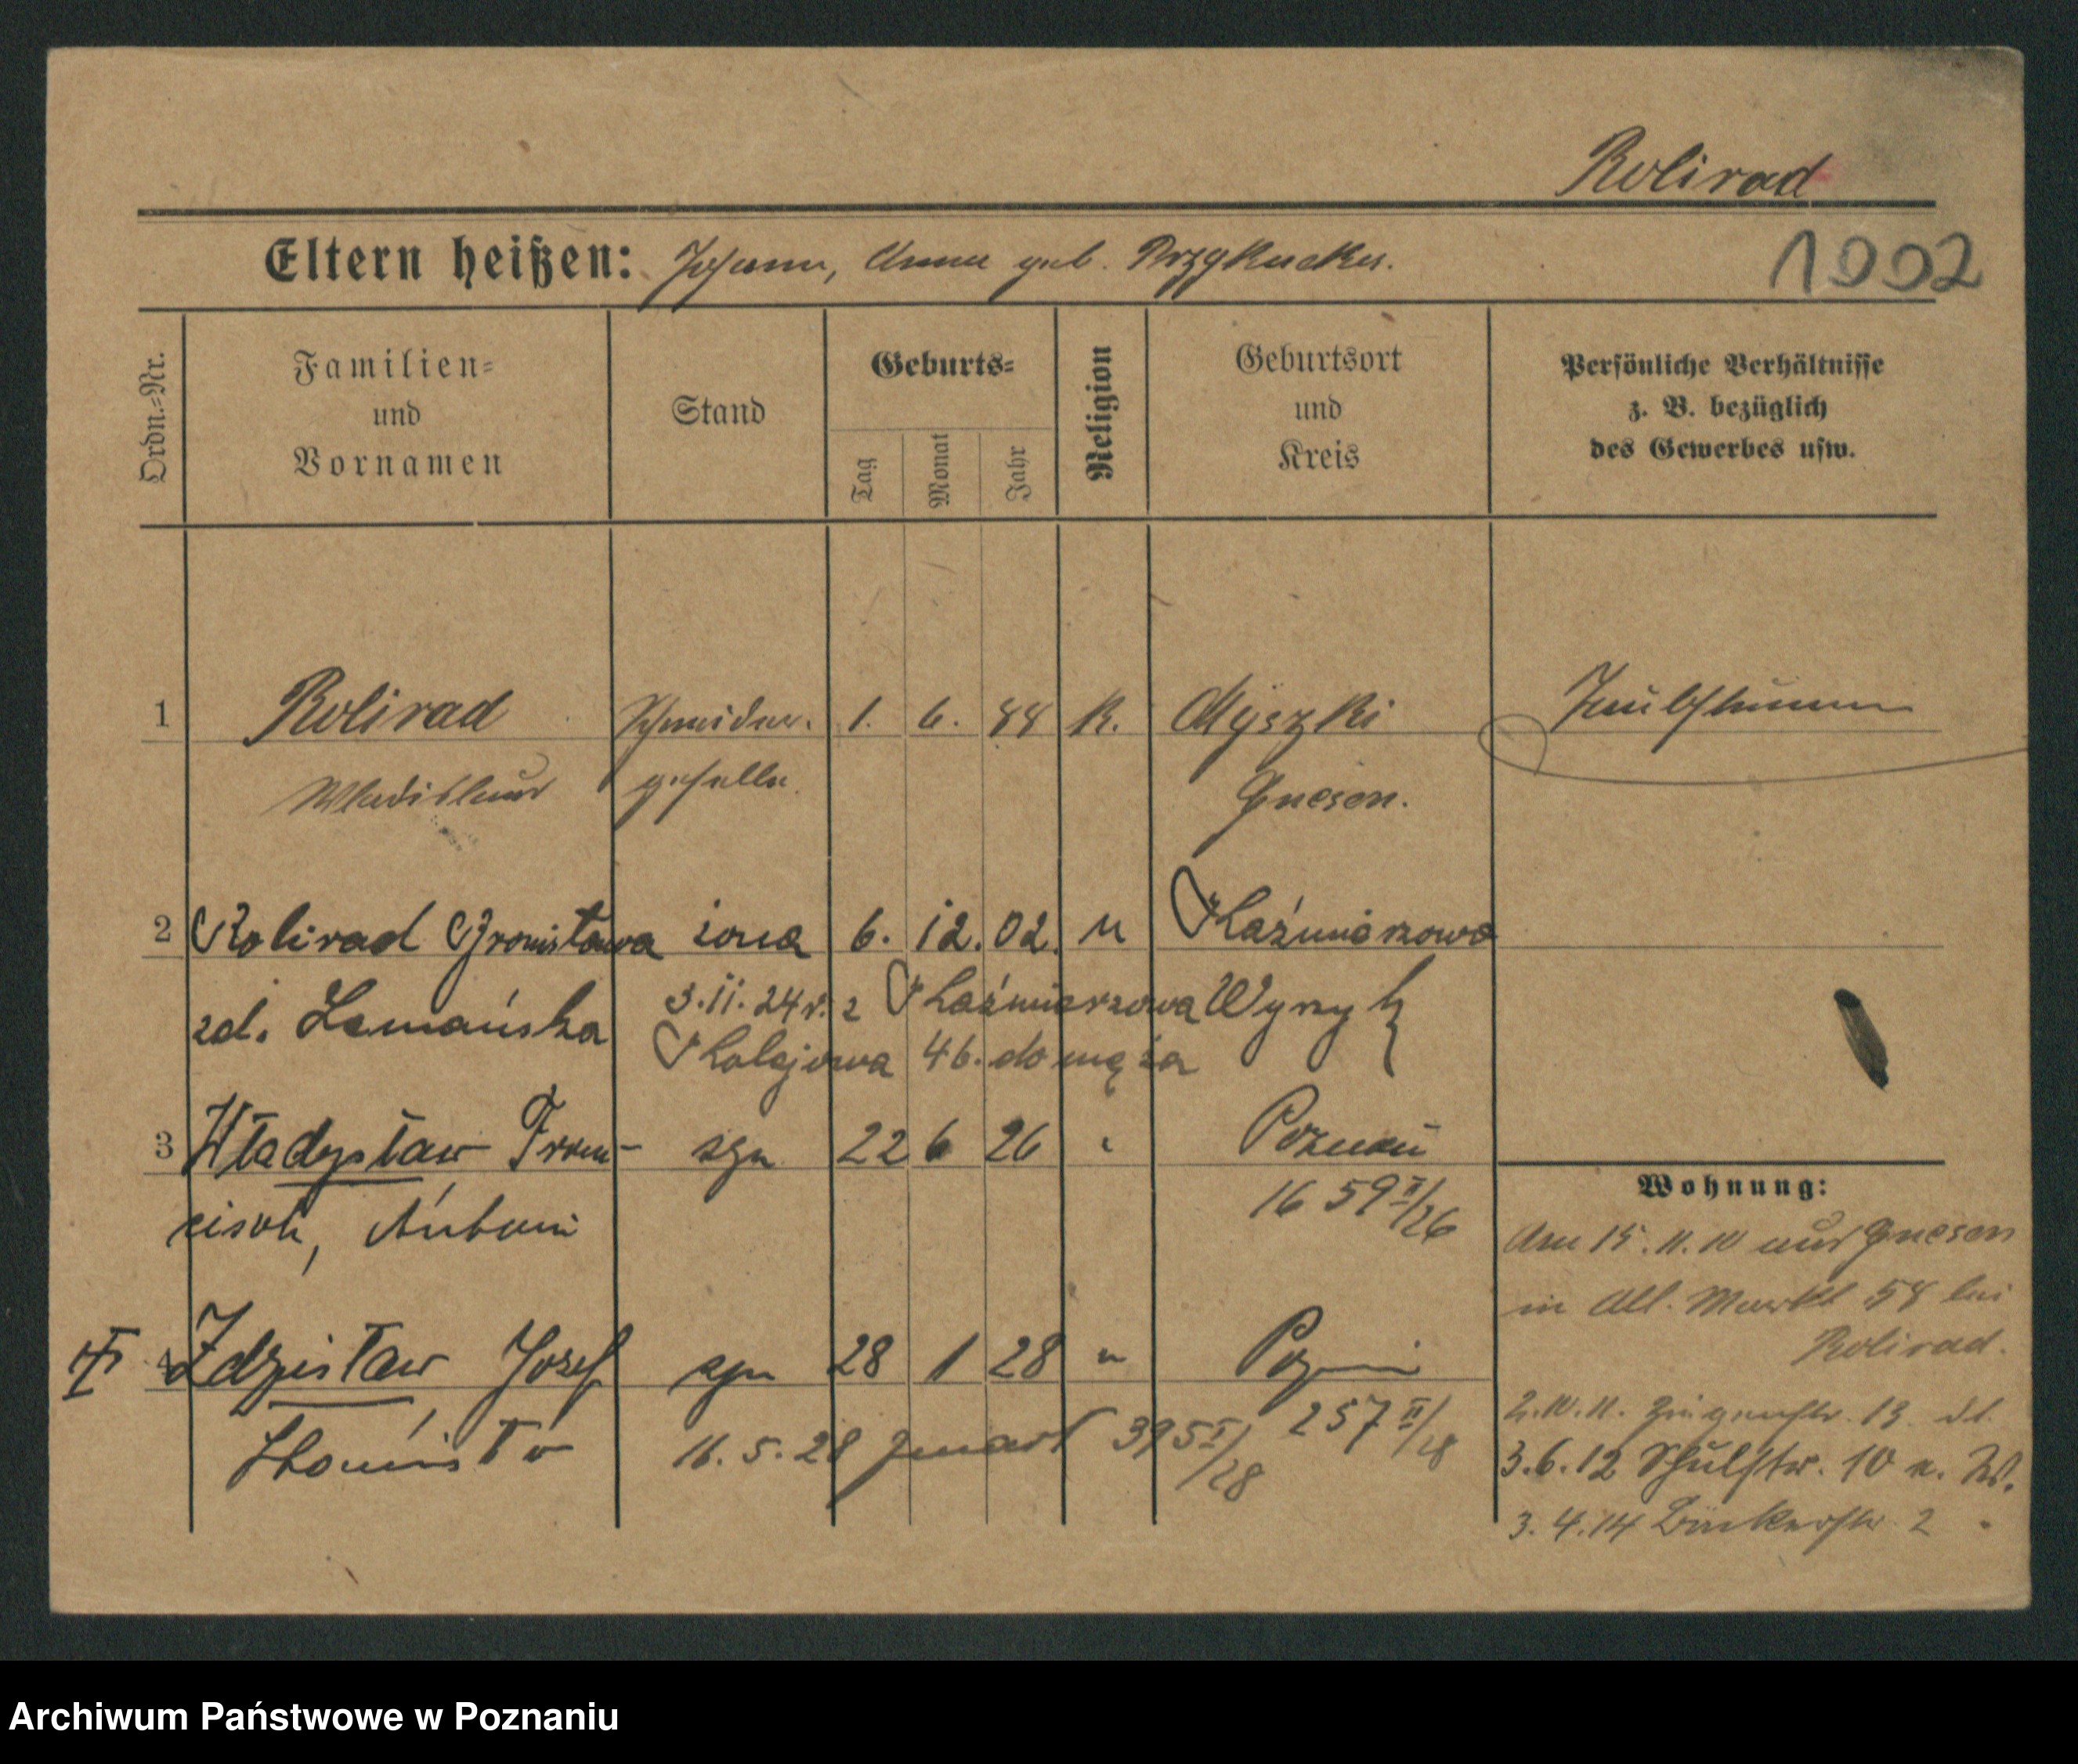 Rolirad
Eltern heißen: Johann, Anna geb. Przykucka.
1002
Ordn.-Nr.
Familien-
und
Vornamen
Stand
Geburts-
Tag
Monat
Jahr
Religion
Geburtsort
und
Kreis
Persönliche Verhältnisse
z. B. bezüglich
des Gewerbes usw.
1 Rolirad Schneider- 1. 6. 88 K. Myszki
Wladislaus geselle. Gnesen.
2 Rolirad Bronisława żona 6. 12. 02. Kaźmierzowo
zd. Lamańska 3.11.24 r. z Kaźmierzowa Wyrzysk
Kolejowa 46. do męża
3 Władysław Fran- syn 22 6 26 Poznań
ciszek, Antoni 16 59 II/26
4 Zdzisław Józef syn 28 1 28 " Pozn
16. 5. 28 zmarł 395 I/28 257 II/28
Wohnung:
Am 15. 11. 10 aus Gnesen
in Alt. Markt 58 bei
Rolirad.
2. 10. 11. 13
3. 6. 12 Schulstr. 10 n. W.
3. 4. 14 Bäckerstr. 2
Archiwum Państwowe w Poznaniu